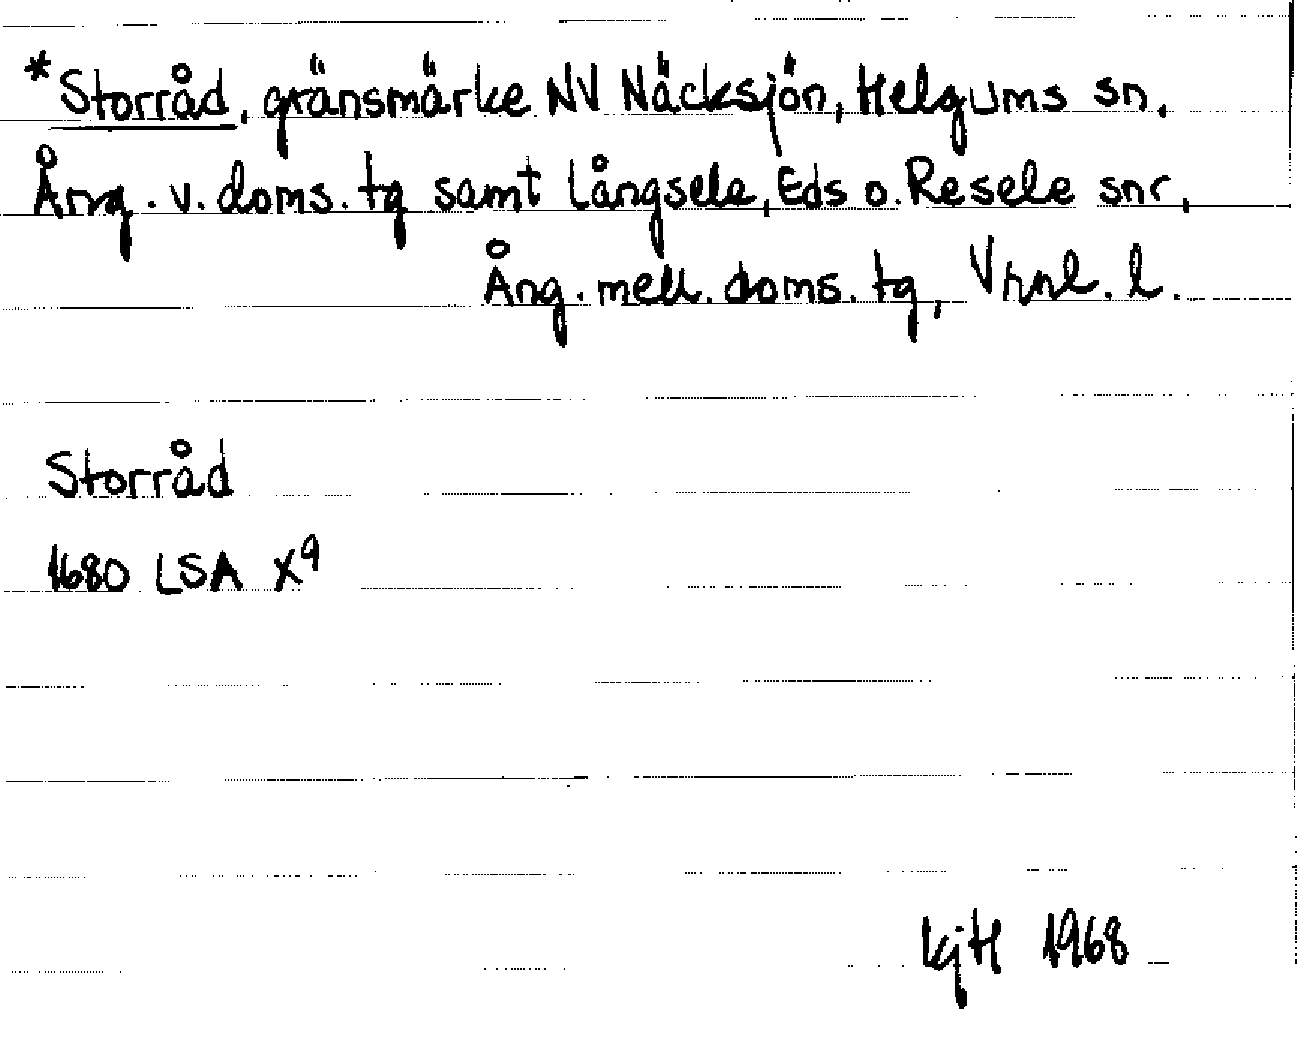 *Storråd, gränsmärke NV Näcksjön, Helgums sn,
Ång. v. doms. tg samt Långsele, Eds o. Resele snr,
Ång. mell. doms. tg, Vrnl. l.
Storråd
1680 LSA X⁹
kjH 1968